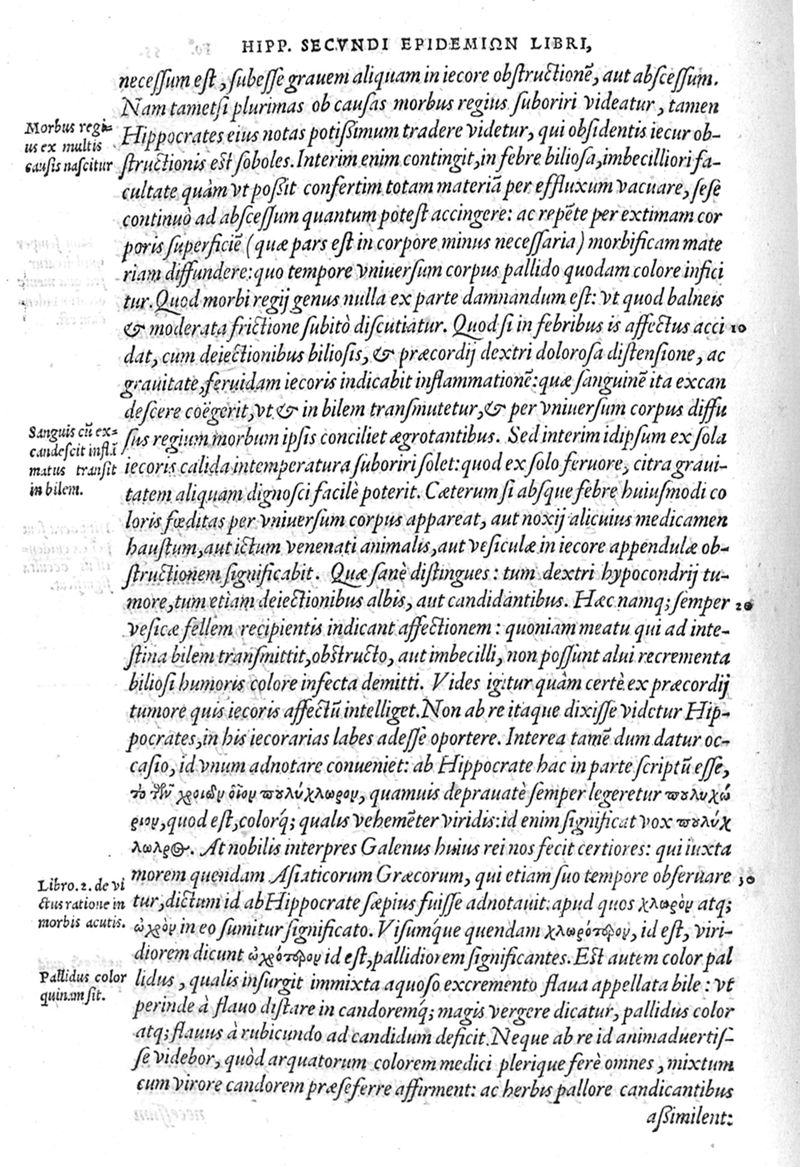 HIPP. SECVNDI EPIDEMIΩN LIBRI,
necessum est, subesse grauem aliquam in iecore obstructionē, aut abscessum.
Nam tametsi plurimas ob causas morbus regius suboriri videatur, tamen
Morbus regi=
us ex multis
causis nascitur
Hippocrates eius notas potissimum tradere videtur, qui obsidentis iecur ob-
structionis est soboles. Interim enim contingit, in febre biliosa, imbecilliori fa-
cultate quàm vt possit confertim totam materiā per effluxum vacuare, sesè
continuò ad abscessum quantum potest accingere: ac repēte per extimam cor
poris superficiē (quæ pars est in corpore minus necessaria) morbificam mate
riam diffundere: quo tempore vniuersum corpus pallido quodam colore infici
tur. Quod morbi regij genus nulla ex parte damnandum est: vt quod balneis
& moderata frictione subitò discutiatur. Quod si in febribus is affectus acci 10
dat, cum deiectionibus biliosis, & præcordij dextri dolorosa distensione, ac
grauitate, feruidam iecoris indicabit inflammationē: quæ sanguinē ita excan
descere coëgerit, vt & in bilem transmutetur, & per vniuersum corpus diffu
Sanguis cū ex=
candescit inflā
matus transit
in bilem.
sus regium morbum ipsis conciliet ægrotantibus. Sed interim idipsum ex sola
iecoris calida intemperatura suboriri solet: quod ex solo feruore, citra graui-
tatem aliquam dignosci facilè poterit. Cæterum si absque febre huiusmodi co
loris fœditas per vniuersum corpus appareat, aut noxij alicuius medicamen
haustum, aut ictum venenati animalis, aut vesiculæ in iecore appendulæ ob-
structionem significabit. Quæ sanè distingues: tum dextri hypocondrij tu-
more, tum etiam deiectionibus albis, aut candidantibus. Hæc namq; semper 20
vesicæ fellem recipientis indicant affectionem: quoniam meatu qui ad inte-
stina bilem transmittit, obstructo, aut imbecilli, non possunt alui recrementa
biliosi humoris colore infecta demitti. Vides igitur quàm certè ex præcordij
tumore quis iecoris affectū intelliget. Non ab re itaque dixisse videtur Hip-
pocrates, in his iecorarias labes adesse oportere. Interea tamē dum datur oc-
casio, id vnum adnotare conueniet: ab Hippocrate hac in parte scriptū esse,
πουλύχλωρον, quamuis deprauatè semper legeretur πουλυχώ
ριον, quod est, colorq; qualis vehemēter viridis: id enim significat vox πουλύχ
λωλρος. At nobilis interpres Galenus huius rei nos fecit certiores: qui iuxta
morem quendam Asiaticorum Græcorum, qui etiam suo tempore obseruare 30
Libro. 2. de vi
ctus ratione in
morbis acutis.
tur, dictum id ab Hippocrate sæpius fuisse adnotauit: apud quos χλωρὸν atq;
ὠχρὸν in eo sumitur significato. Visumque quendam χλωρότερον, id est, viri-
diorem dicunt ὠχρότερον id est, pallidiorem significantes. Est autem color pal
Pallidus color
quinam sit.
lidus, qualis insurgit immixta aquoso excremento flaua appellata bile: vt
perinde à flauo distare in candoremq; magis vergere dicatur, pallidus color
atq; flauus à rubicundo ad candidum deficit. Neque ab re id animaduertis-
se videbor, quòd arquatorum colorem medici plerique ferè omnes, mixtum
cum virore candorem præseferre affirment: ac herbis pallore candicantibus
assimilent: